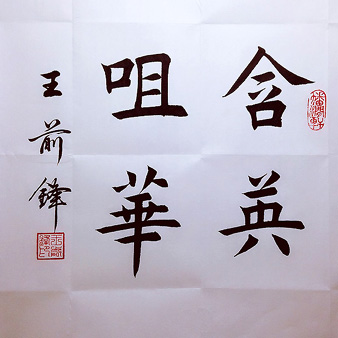 含英
咀華
王前鋒